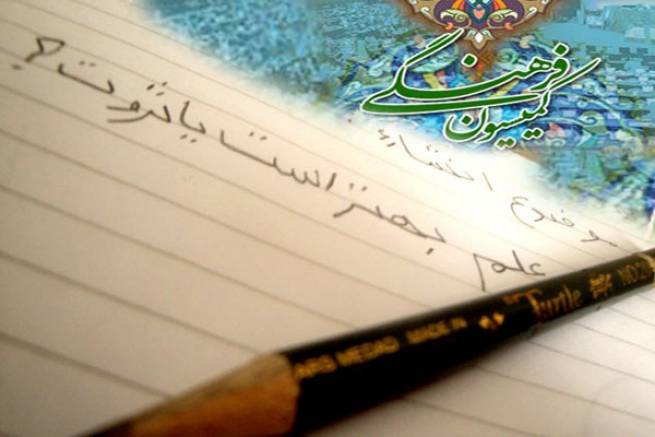 کمیسیون فرهنگی
موضوع انشاء
علم بهتر است یا ثروت؟
Turtle NO2
PARS MEDAD MADE IN